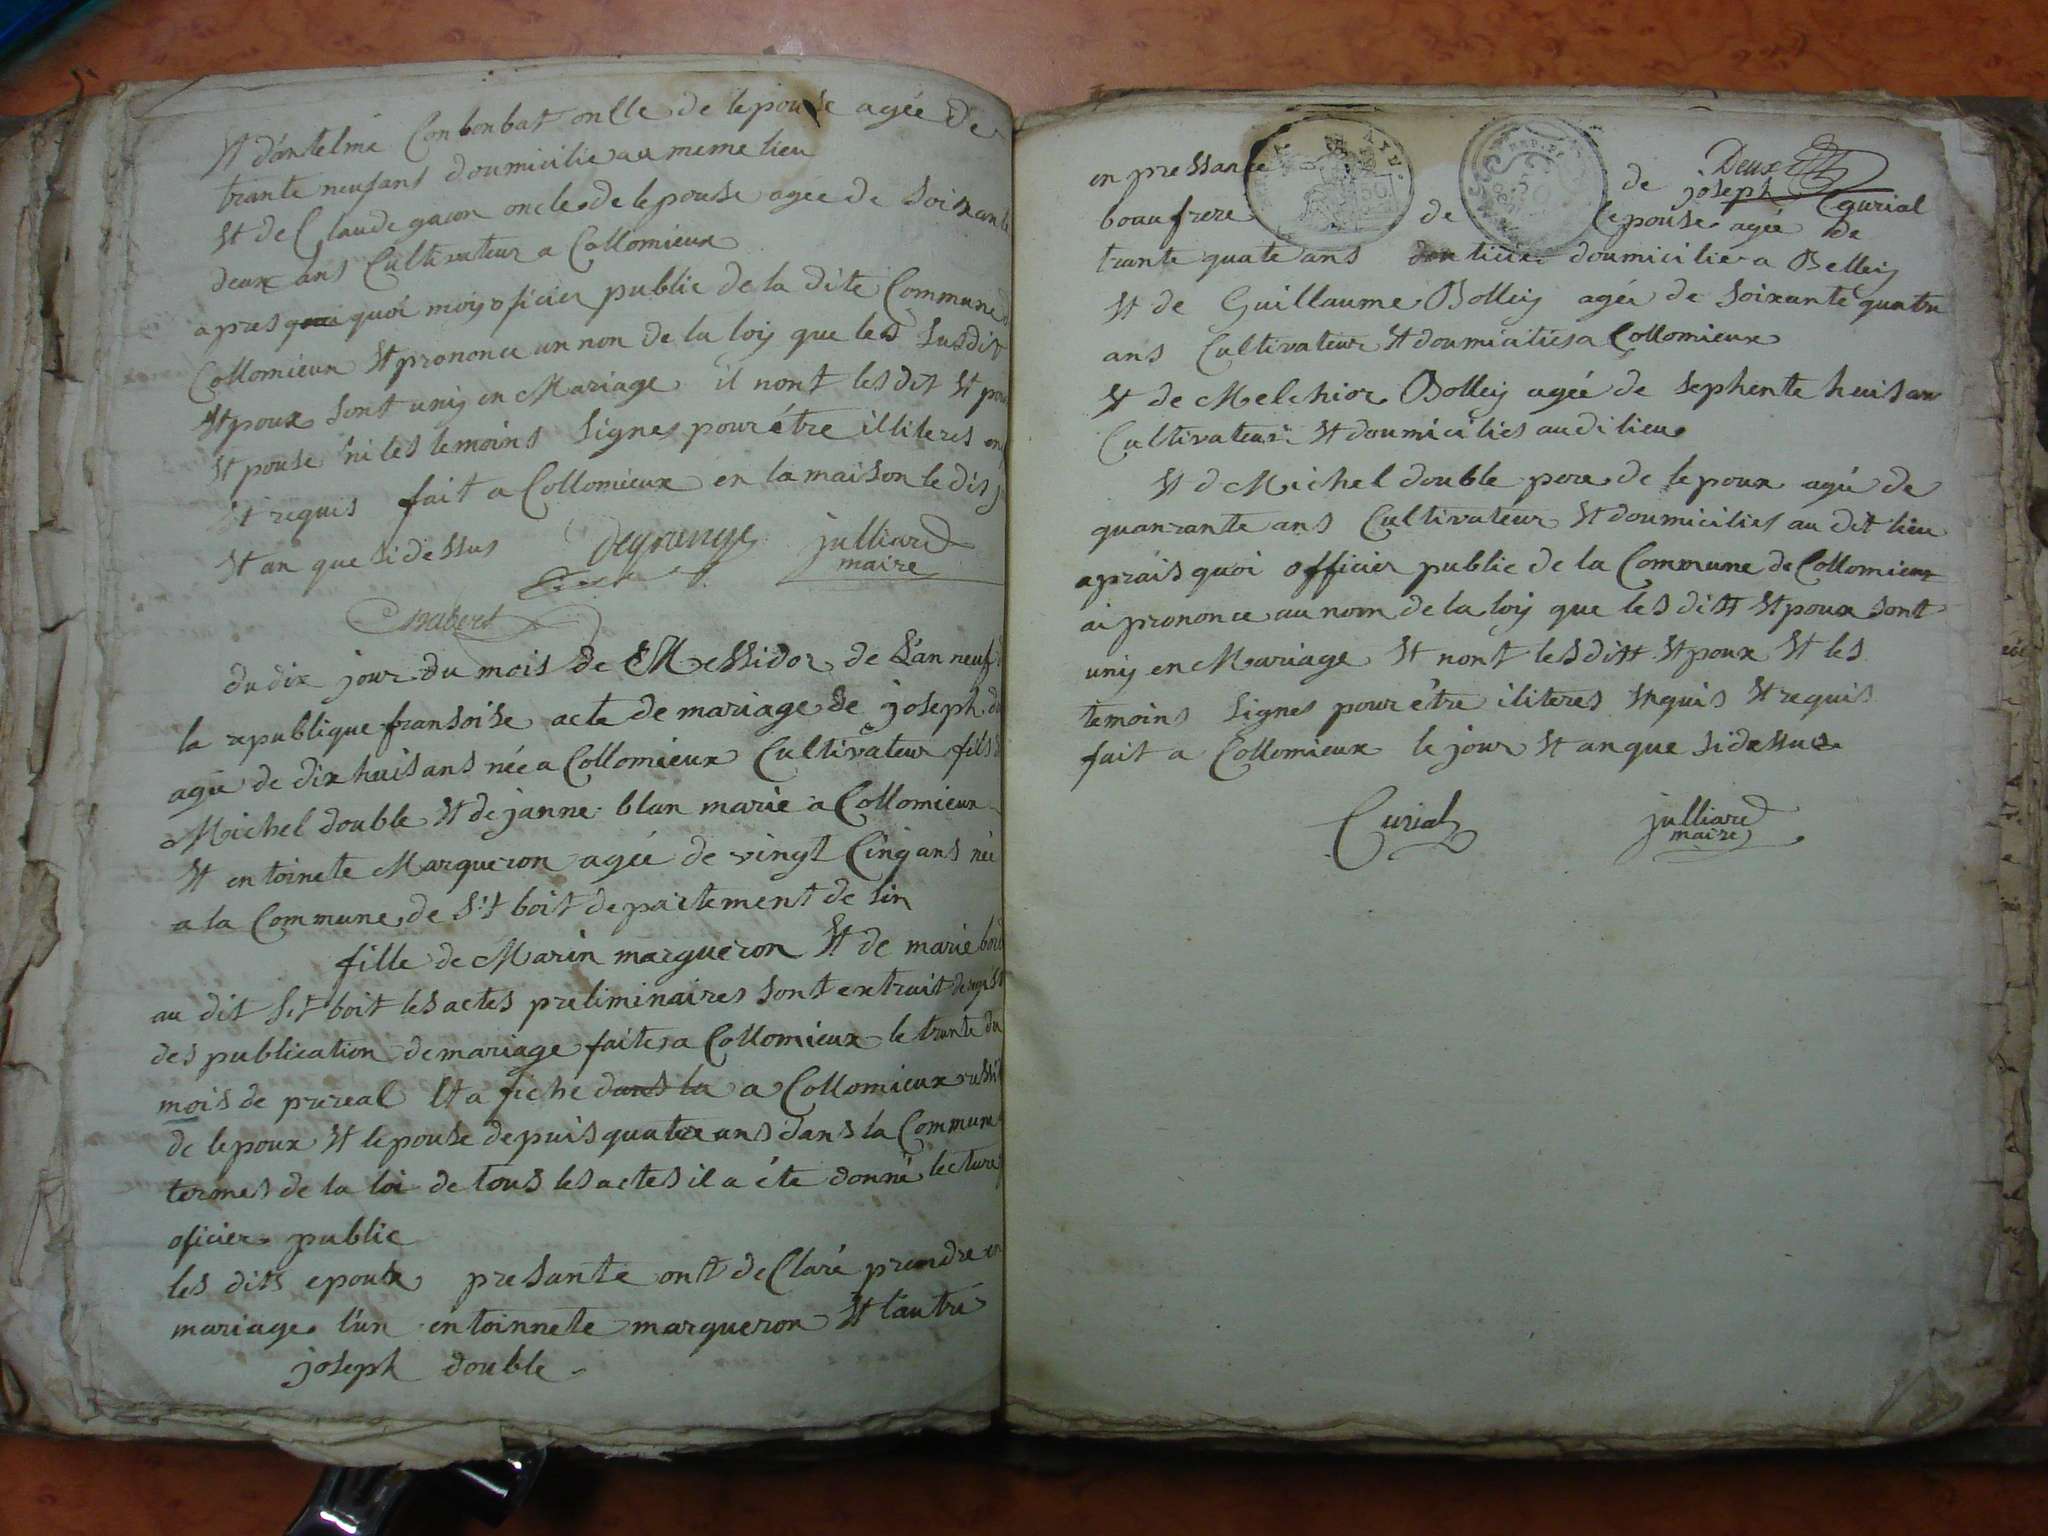 St d'antelme Conbonbat onlle de lepouse agée de
trante neufans doumicilie au meme lieu
St de Claude gacon oncle de lepouse agée de Soixante
deux ans Cultivateur a Collomieux
apres quoi moy oficier public de la dite Commune
Collomieux St prononce un non de la loy que les Susdit
St poux Sont uniy en Mariage il nont les dit St poux
St pouse ni les temoins Signes pour étre illiteres
St requis fait a Collomieux en la maison le dis
St an que Sidessus Degrange julliard
maire
Chabert
du dix jour du mois de Messidor de L'an neuf
la republique fransoise acte de mariage de joseph
agée de dix huis ans née a Collomieux Cultivateur fils
Michel double St de janne blan marié a Collomieux
St entoinete Margueron agée de vingt Cinq ans née
a la Commune de S:t boit departement de lin
fille de Marin margueron St de marie
au dit S:t boit les actes preliminaires Sont extrait
des publication de mariage faites a Collomieux le trante du
mois de prereal St a fiche dans la a Collomieux
de lepoux St lepouse depuis quatre ans dans la Commune
termes de la loi de tous les actes il a éte donné lecture
oficier public
les dits epoux presante ont de Claré prendre en
mariage l'un entoinnete margueron St l'autre
joseph double
Deux
en pressance de joseph Curial
boaufrere de lepouse agée de
trante quate ans doumicilie a Belleiy
St de Guillaume Bolleiy agée de Soixante quatre
ans Cultivateur St doumicilies a Collomieux
St de Melchior Bolleiy agée de Sephente huis an
Cultivateur St doumicilies audi lieu
St d Michel double pere de lepoux agée de
quanrante ans Cultivateur St doumicilies au dit lieu
aprais quoi officier public de la Commune de Collomieux
ai prononce au nom de la loy que les ditt St poux Sont
uniy en Mariage St nont les ditt St poux St les
temoins Signes pour étre iliteres Snquis St requis
fait a Collomieux le jour St an que Sidessus
Curial julliard
maire